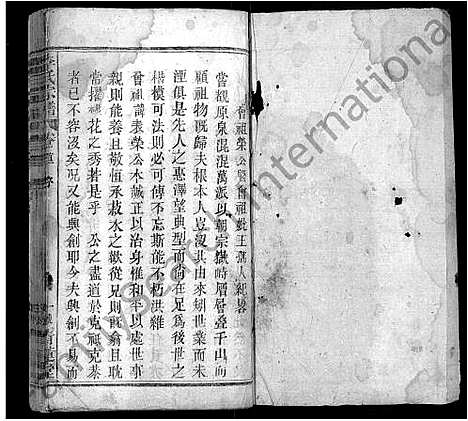 曾祖榮公暨曾祖妣王孺人紀畧
嘗觀原泉混混萬派以朝宗嶽峙層層叠千山而
顧祖物既歸夫根本人豈沒其由來矧世業而未
湮俱是先人之惠澤望典型而尚在足爲後世之
楷模可法則必可傳不忘斯能不朽洪維
曾祖諱表榮公本誠正以治身惟和平以處世事
親則能養且敬恒承菽水之歡從兄則既翕且耽
常擢棣花之秀若是乎 公之盡道於克祖克恭
者已不容沒矣况又能興創耶今夫興創不易而
卷首